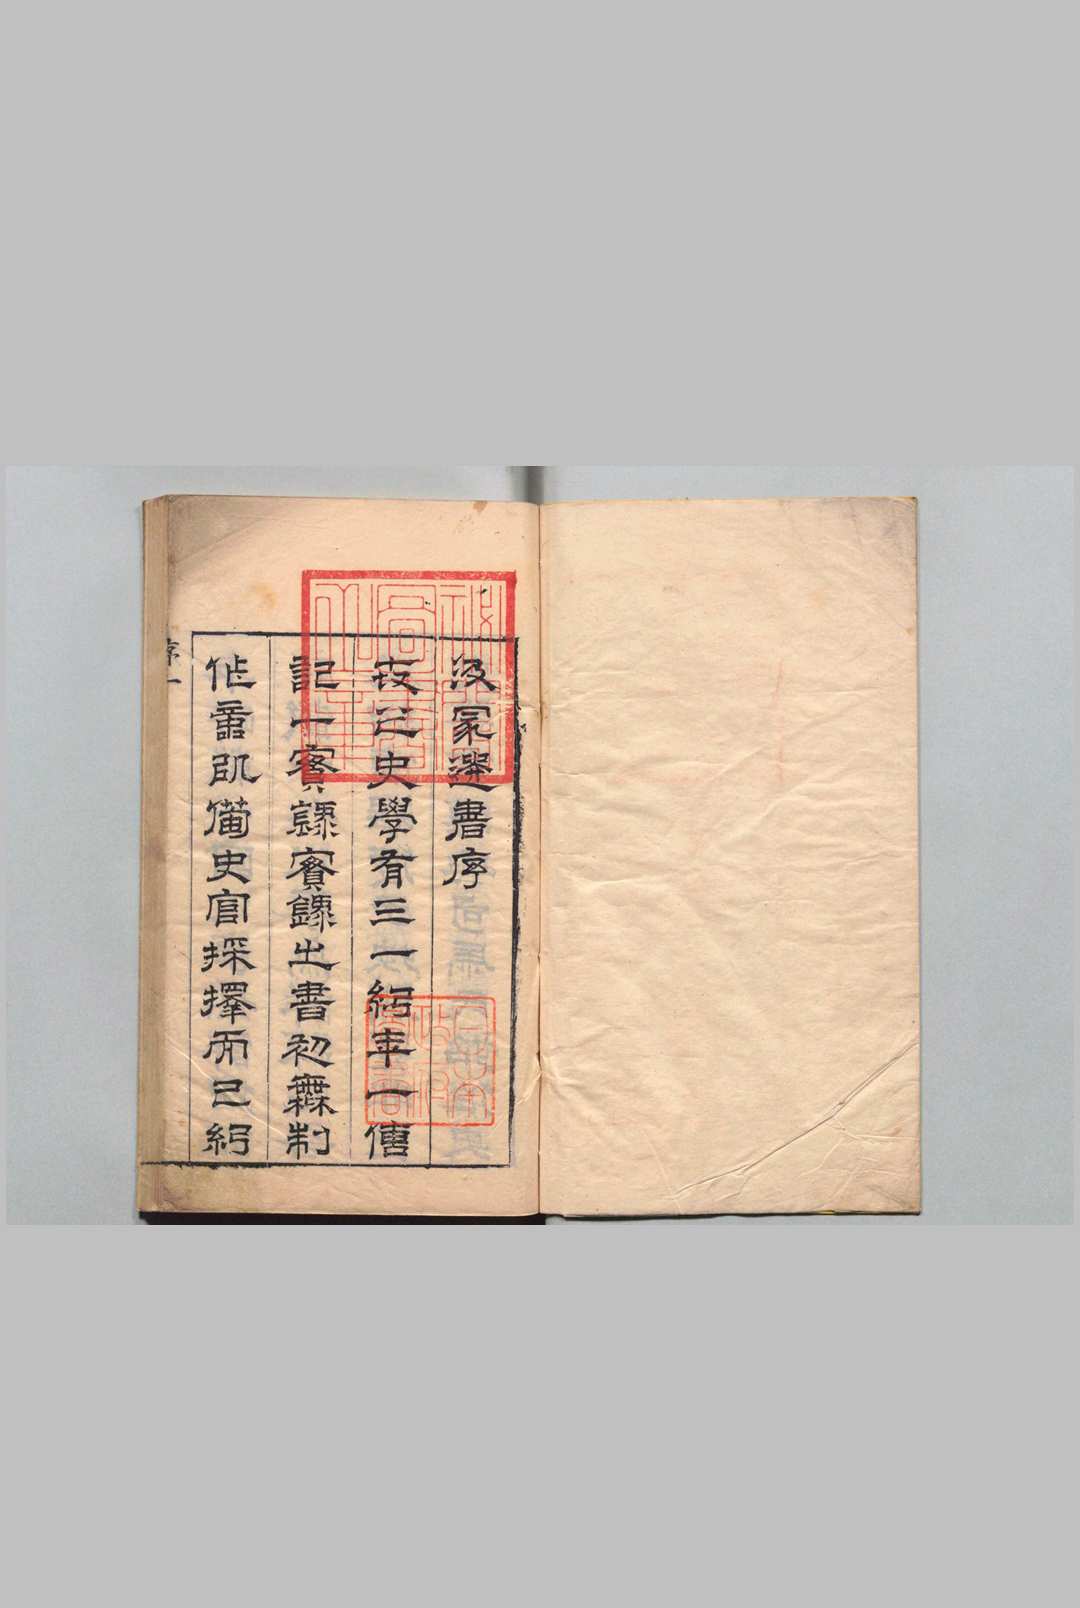 汲冢選書序
史學有三一紀年一傳
記一實錄實錄之書初無制
作意祇備史官採擇而已紀
序一